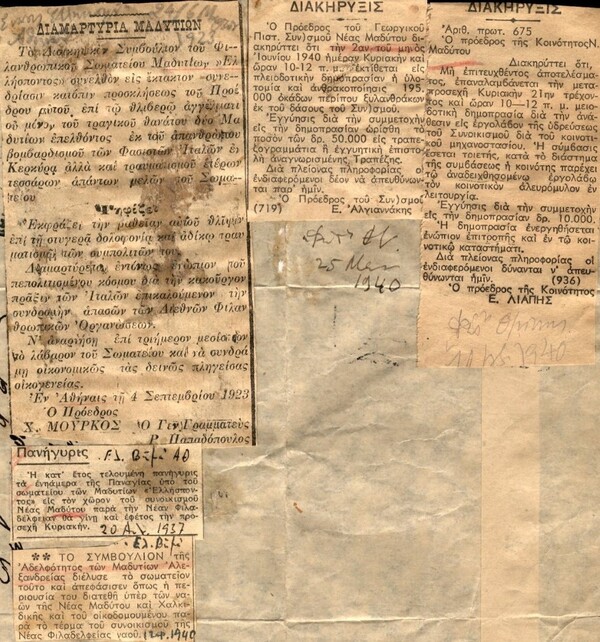 ΔΙΑΜΑΡΤΥΡΙΑ ΜΑΔΥΤΙΩΝ
Τὸ Διοικητικὸν Συμβούλιον τοῦ Φι-
λανθρωπικοῦ Σωματείου Μαδυτίων «Ἑλ-
λήσποντος» συνελθὸν εἰς ἔκτακτον συνε-
δρίασιν κατόπιν προσκλήσεως τοῦ Προέ-
δρου αὐτοῦ, ἐπὶ τῷ θλιβερῷ ἀγγέλματι
οὐ μόνον τοῦ τραγικοῦ θανάτου δύο Μα-
δυτίων ἐπελθόντος ἐκ τοῦ ἀπανθρώπου
βομβαρδισμοῦ τῶν Φασιστῶν Ἰταλῶν ἐν
Κερκύρᾳ ἀλλὰ καὶ τραυματισμοῦ ἑτέρων
τεσσάρων ἁπάντων μελῶν τοῦ Σωμα-
τείου
Ψηφίζει
Ἐκφράζει τὴν βαθεῖαν αὐτοῦ θλῖψιν
ἐπὶ τῇ στυγερᾷ δολοφονίᾳ καὶ ἀδίκῳ τραυ
ματισμῷ τῶν συμπολιτῶν του.
Διαμαρτύρεται ἐντόνως ἐνώπιον τοῦ
πεπολιτισμένου κόσμου διὰ τὴν κακοῦργον
πρᾶξιν τῶν Ἰταλῶν ἐπικαλούμενον τὴν
συνδρομὴν ἁπασῶν τῶν Διεθνῶν Φιλαν
θρωπικῶν Ὀργανώσεων.
Ν' ἀναρτήσῃ ἐπὶ τριήμερον μεσίστιον
τὸ λάβαρον τοῦ Σωματείου καὶ νὰ συνδρά
μῃ οἰκονομικῶς τὰς δεινῶς πληγείσας
οἰκογενείας.
Ἐν Ἀθήναις τῇ 4 Σεπτεμβρίου 1923
Ὁ Πρόεδρος
Χ. ΜΟΥΡΚΟΣ Ὁ Γεν. Γραμματεὺς
Ρ. Παπαδόπουλος
Πανήγυρις Ελ. Βῆμα
Ἡ κατ' ἔτος τελουμένη πανήγυρις
τὰ ἐννιάμερα τῆς Παναγίας ὑπὸ τοῦ
σωματείου τῶν Μαδυτίων «Ἑλλήσπον-
τος» εἰς τὸν χῶρον τοῦ συνοικισμοῦ
Νέας Μαδύτου παρὰ τὴν Νέαν Φιλα-
δέλφειαν θὰ γίνῃ καὶ ἐφέτος τὴν προ-
σεχῆ Κυριακήν.
20 Αυγ. 1937
Ελ. Βῆμα
** ΤΟ ΣΥΜΒΟΥΛΙΟΝ τῆς
Ἀδελφότητος τῶν Μαδυτίων Ἀλε-
ξανδρείας διέλυσε τὸ σωματεῖον
τοῦτο καὶ ἀπεφάσισεν ὅπως ἡ πε-
ριουσία του διατεθῇ ὑπὲρ τῶν να-
ῶν τῆς Νέας Μαδύτου καὶ Χαλκιδι-
κῆς καὶ τοῦ οἰκοδομουμένου πα-
ρὰ τὸ τέρμα τοῦ συνοικισμοῦ τῆς
Νέας Φιλαδελφείας ναοῦ. 1940
ΔΙΑΚΗΡΥΞΙΣ
Ὁ Πρόεδρος τοῦ Γεωργικοῦ
Πιστ. Συν)σμοῦ Νέας Μαδύτου δι-
ακηρύττει ὅτι τὴν 2αν τοῦ μηνὸς
Ἰουνίου 1940 ἡμέραν Κυριακὴν καὶ
ὥραν 10-12 π. μ. ἐκτίθεται εἰς
πλειοδοτικὴν δημοπρασίαν ἡ ὑλο-
τομία καὶ ἀνθρακοποίησις 195.
000 ὀκάδων περίπου ξυλανθράκων
ἐκ τοῦ δάσους τοῦ Συν)σμοῦ.
Ἐγγύησις διὰ τὴν συμμετοχὴν
εἰς τὴν δημοπρασίαν ὡρίσθη τὸ
ποσὸν τῶν δρ. 50.000 εἰς τραπε-
ζογραμμάτια ἢ ἐγγυητικὴ ἐπιστο-
λὴ ἀνεγνωρισμένης Τραπέζης.
Διὰ πλείονας πληροφορίας οἱ
ἐνδιαφερόμενοι δέον νὰ ἀπευθύνων-
ται παρ' ἡμῖν.
Ὁ Πρόεδρος τοῦ Συν)σμοῦ
(719) Ε. Ἀλγιαννάκης
25 Μαι
1940
ΔΙΑΚΗΡΥΞΙΣ
Ἀριθ. πρωτ. 675
Ὁ πρόεδρος τῆς Κοινότητος Ν.
Μαδύτου
Διακηρύττει ὅτι,
Μὴ ἐπιτευχθέντος ἀποτελέσμα-
τος, ἐπαναλαμβάνεται τὴν μετα-
προσεχῆ Κυριακὴν 21ην τρέχον-
τος καὶ ὥραν 10—12 π. μ. μειο-
δοτικὴ δημοπρασία διὰ τὴν ἀνά-
θεσιν εἰς ἐργολάβον τῆς ὑδρεύσεως
τοῦ Συνοικισμοῦ διὰ τοῦ κοινοτι-
κοῦ μηχανοστασίου. Ἡ σύμβασις
ἔσεται τριετής, κατὰ τὸ διάστημα
τῆς συμβάσεως ἡ κοινότης παρέχει
τῷ ἀναδειχθησομένῳ ἐργολάβῳ
τὸν κοινοτικὸν ἀλευρόμυλον ἐν
λειτουργίᾳ.
Ἐγγύησις διὰ τὴν συμμετοχὴν
εἰς τὴν δημοπρασίαν δρ. 10.000.
Ἡ δημοπρασία ἐνεργηθήσεται
ἐνώπιον ἐπιτροπῆς καὶ ἐν τῷ κοι-
νοτικῷ καταστήματι.
Διὰ πλείονας πληροφορίας οἱ
ἐνδιαφερόμενοι δύνανται ν' ἀπευ-
θύνωνται ἡμῖν. (936)
Ὁ πρόεδρος τῆς Κοινότητος
Ε. ΛΙΑΠΗΣ
1940